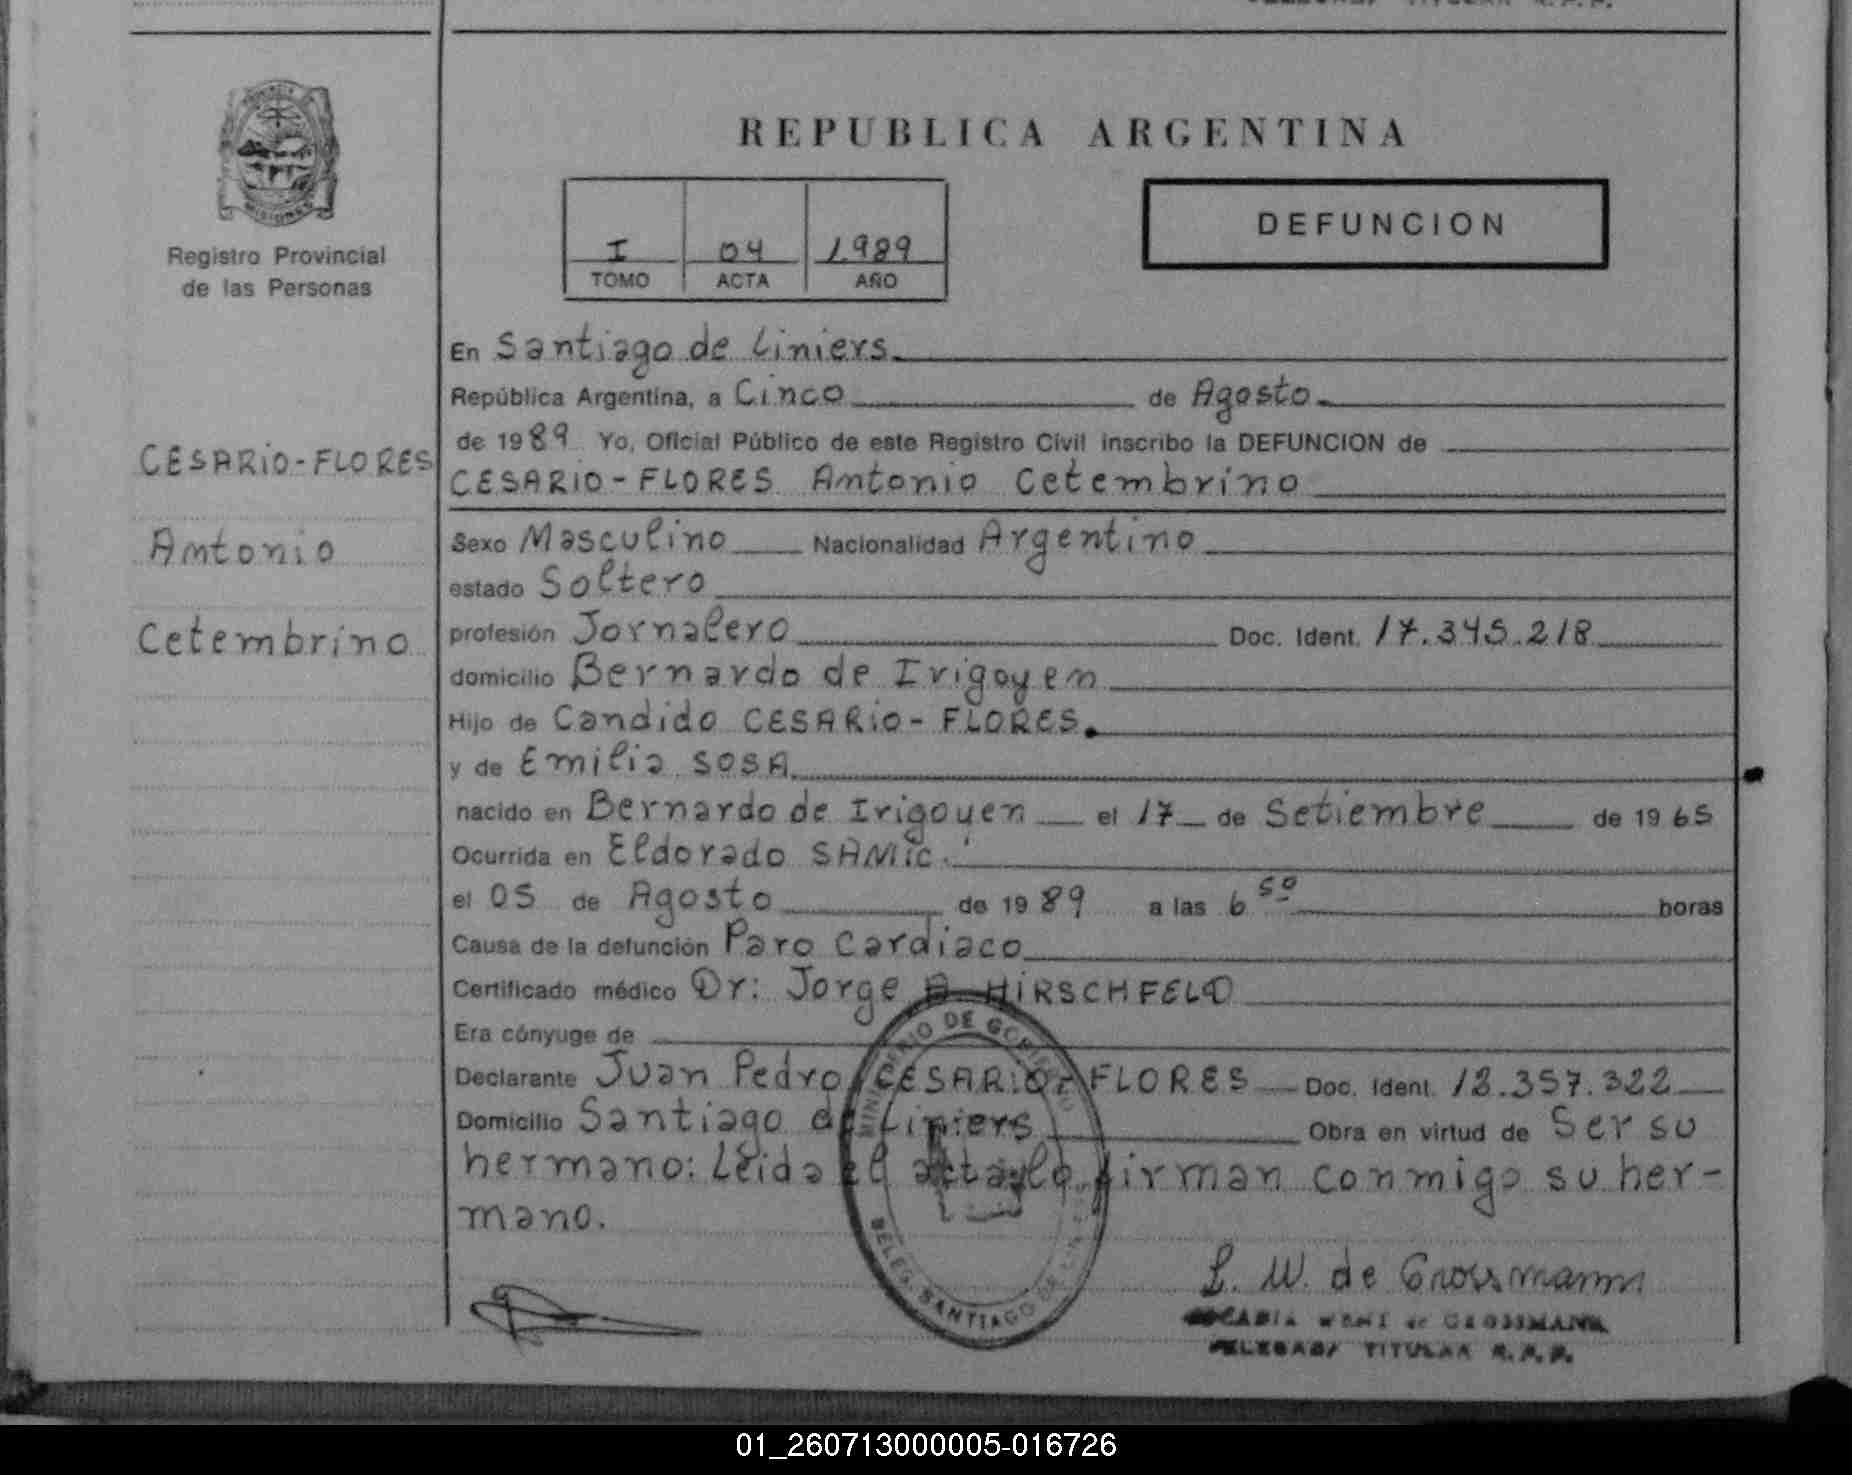 REPUBLICA ARGENTINA
MISIONES
Registro Provincial
de las Personas
I 04 1989
TOMO ACTA AÑO
DEFUNCION
CESARIO-FLORES
Antonio
Cetembrino
En Santiago de Liniers
República Argentina, a Cinco de Agosto
de 1989 Yo, Oficial Público de este Registro Civil inscribo la DEFUNCION de
CESARIO-FLORES Antonio Cetembrino
Sexo Masculino Nacionalidad Argentino
estado Soltero
profesión Jornalero Doc. Ident. 17.345.218
domicilio Bernardo de Irigoyen
Hijo de Candido CESARIO-FLORES.
y de Emilia SOSA
nacido en Bernardo de Irigoyen el 17 de Setiembre de 1965
Ocurrida en Eldorado SAMIC.
el 05 de Agosto de 1989 a las 6 50 horas
Causa de la defunción Paro Cardiaco
Certificado médico Dr: Jorge A. HIRSCHFELD
Era cónyuge de
Declarante Juan Pedro CESARIO-FLORES Doc. Ident. 12.357.322
Domicilio Santiago de Liniers Obra en virtud de Ser su
hermano: Leida el acta, lo firman conmigo su her-
mano.
MINISTERIO DE GOBIERNO
DELEG. SANTIAGO DE LINIERS
L. W. de Grossmann
de GROSSMANN
TITULAR R.P.P.
01_260713000005-016726